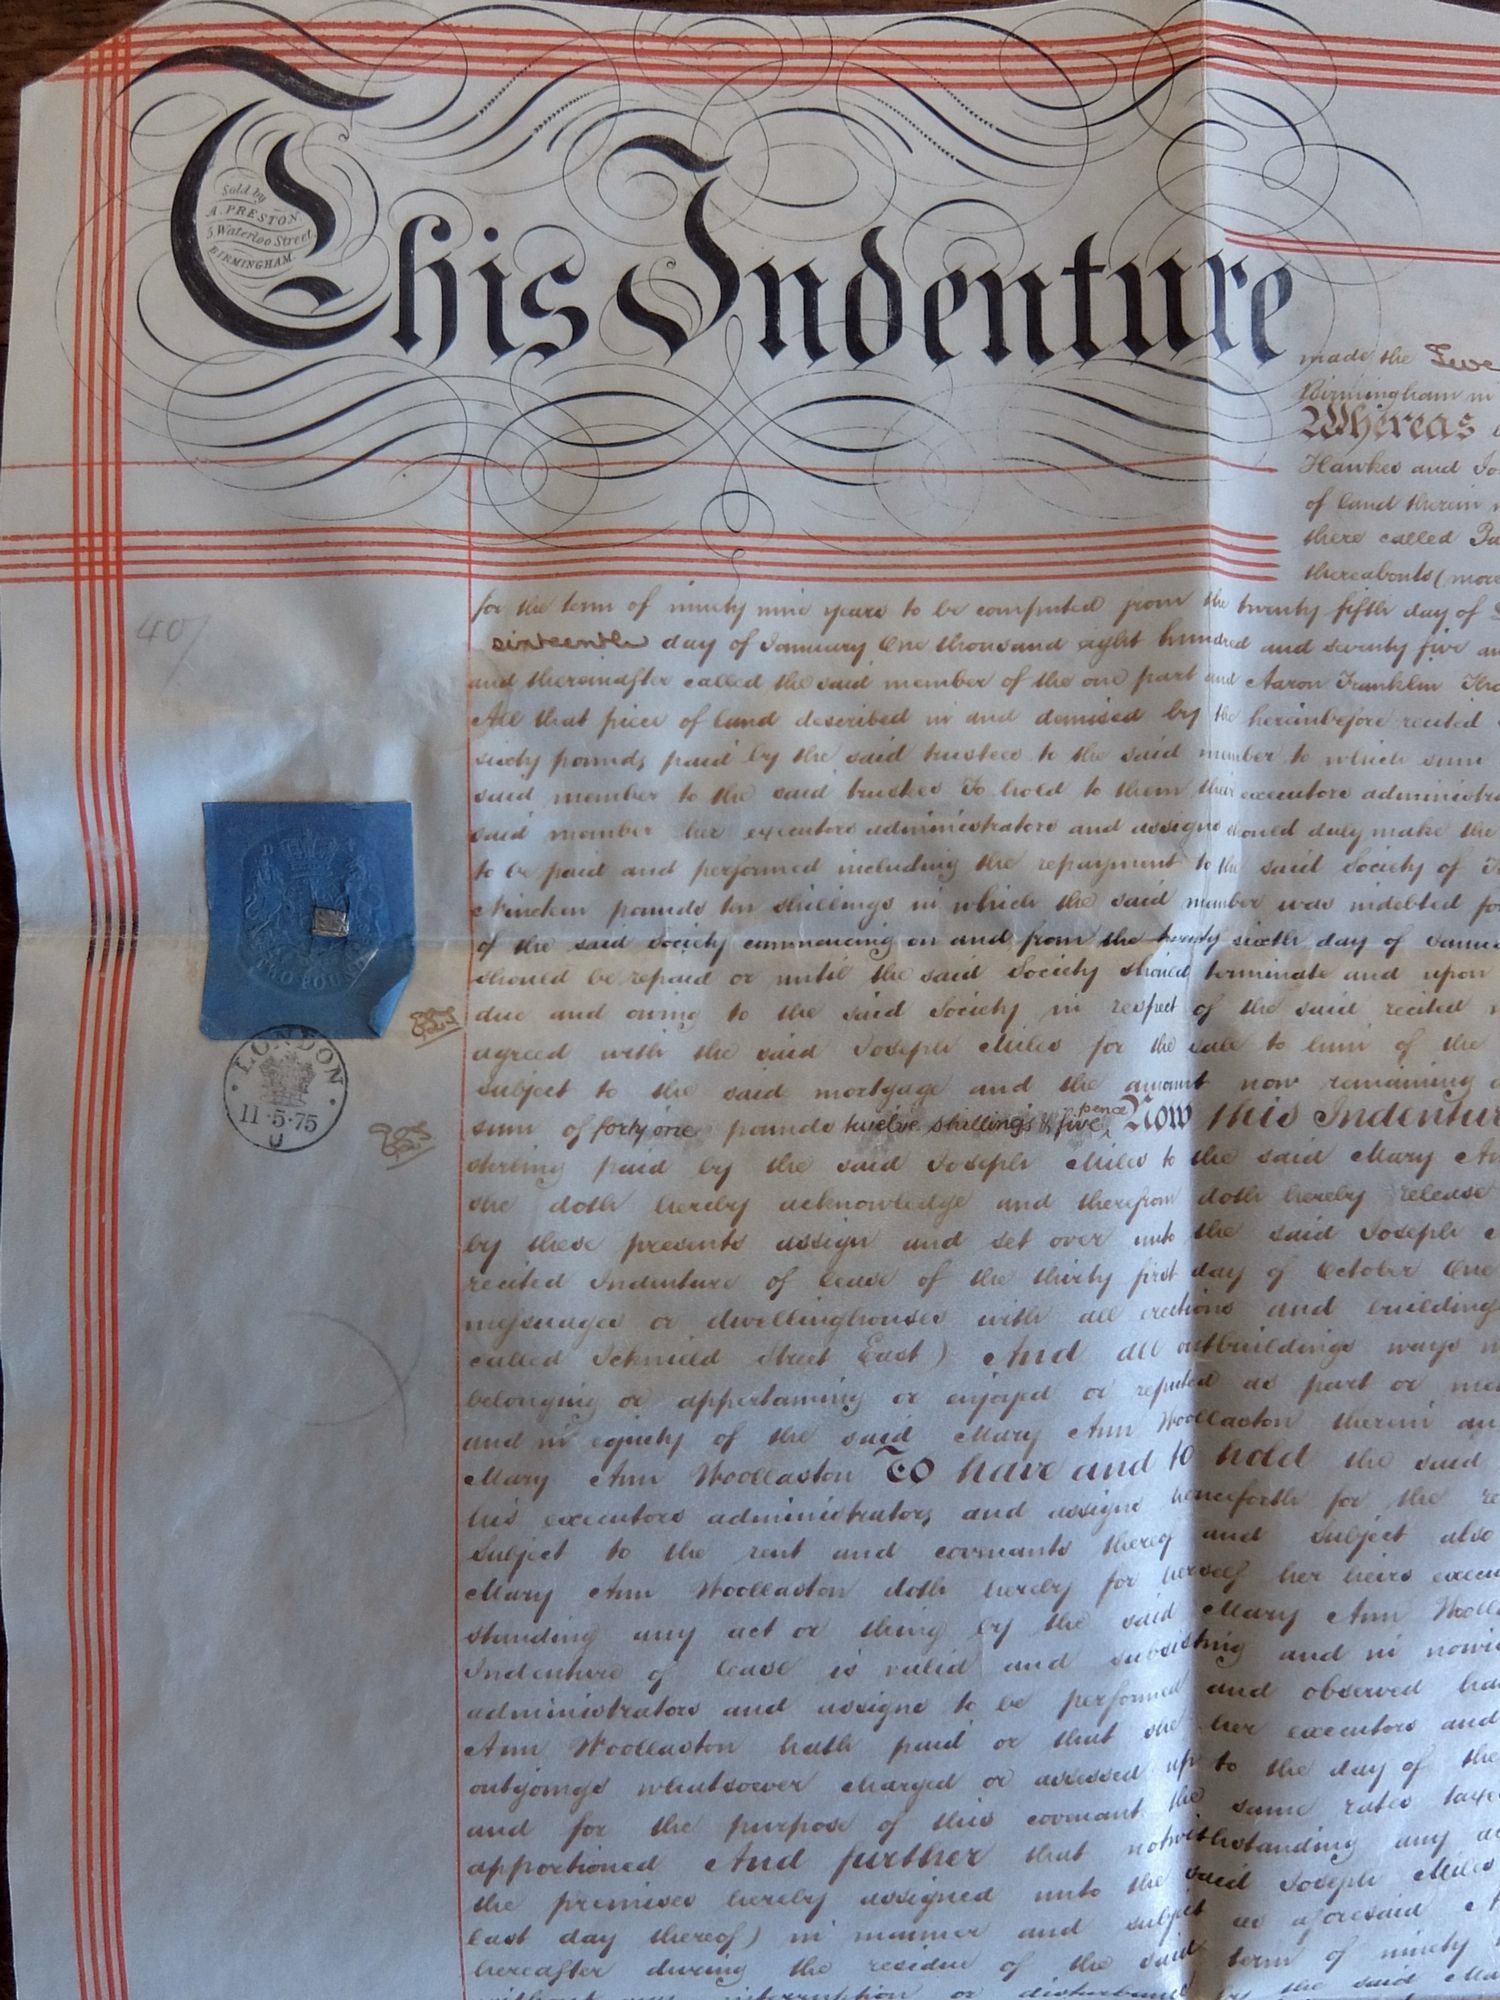 This Indenture
Sold by
A. PRESTON
5 Waterloo Street
BIRMINGHAM
made the
Birmingham in
Whereas
Hawkes and
of land therein
there called
thereabouts (more
for the term of ninety nine years to be computed from the twenty fifth day of
sixteenth day of January One thousand eight hundred and seventy five
and thereinafter called the said member of the one part and Aaron Franklin
All that piece of land described in and demised by the hereinbefore recited
sixty pounds paid by the said trustees to the said member to which sum
said member to the said trustees To hold to them their executors
said member her executors administrators and assigns should duly make the
to be paid and performed including the repayment to the said Society of
Nineteen pounds ten shillings in which the said member was indebted
of the said Society commencing on and from the twenty sixth day of
should be repaid or until the said Society should terminate and upon
due and owing to the said Society in respect of the said recited
agreed with the said Joseph Miles for the sale to him of the
subject to the said mortgage and the amount now remaining
sum of forty one pounds twelve shillings & five pence Now this Indenture
sterling paid by the said Joseph Miles to the said Mary
she doth hereby acknowledge and therefrom doth hereby release
by these presents assign and set over unto the said Joseph
recited Indenture of lease of the thirty first day of October One
messuages or dwellinghouses with all erections and buildings
called Icknield Street East) And all outbuildings ways
belonging or appertaining or enjoyed or reputed as part or
and in equity of the said Mary Ann Woollaston therein
Mary Ann Woollaston To have and to hold the said
his executors administrators and assigns henceforth for the
Subject to the rent and covenants thereof and subject also
Mary Ann Woollaston doth hereby for herself her heirs
standing any act or thing by the said Mary Ann
Indenture of lease is valid and subsisting and in
administrators and assigns to be performed and observed
Ann Woollaston hath paid or that she her executors and
outgoings whatsoever charged or assessed up to the day of the
and for the purpose of this covenant the same rates
apportioned And further that notwithstanding any
the premises hereby assigned unto the said Joseph Miles
last day thereof) in manner and subject as aforesaid
hereafter during the residue of the said term of ninety
interruption or by the said
40/
TWO POUNDS
LONDON
11·5·75